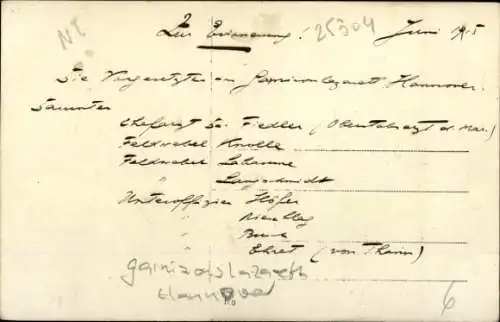 NI
Zur Erinnerung! 25304 Juni 1915
Die Vorgesetzten am Garnisonlazarett Hannover.
Chefarzt Dr. Fiedler (Oberstabsarzt d. Mar.)
Feldwebel Knolle
Feldwebel
" Langschmidt
Unteroffizier Höfer
"
"
" Ehret (von Thann)
garnisonslazareth
Hannover
6